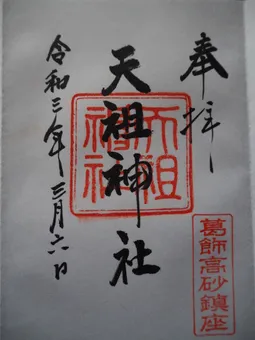 奉拝
天祖神社
天祖神社
令和三年三月六日
葛飾高砂鎮座